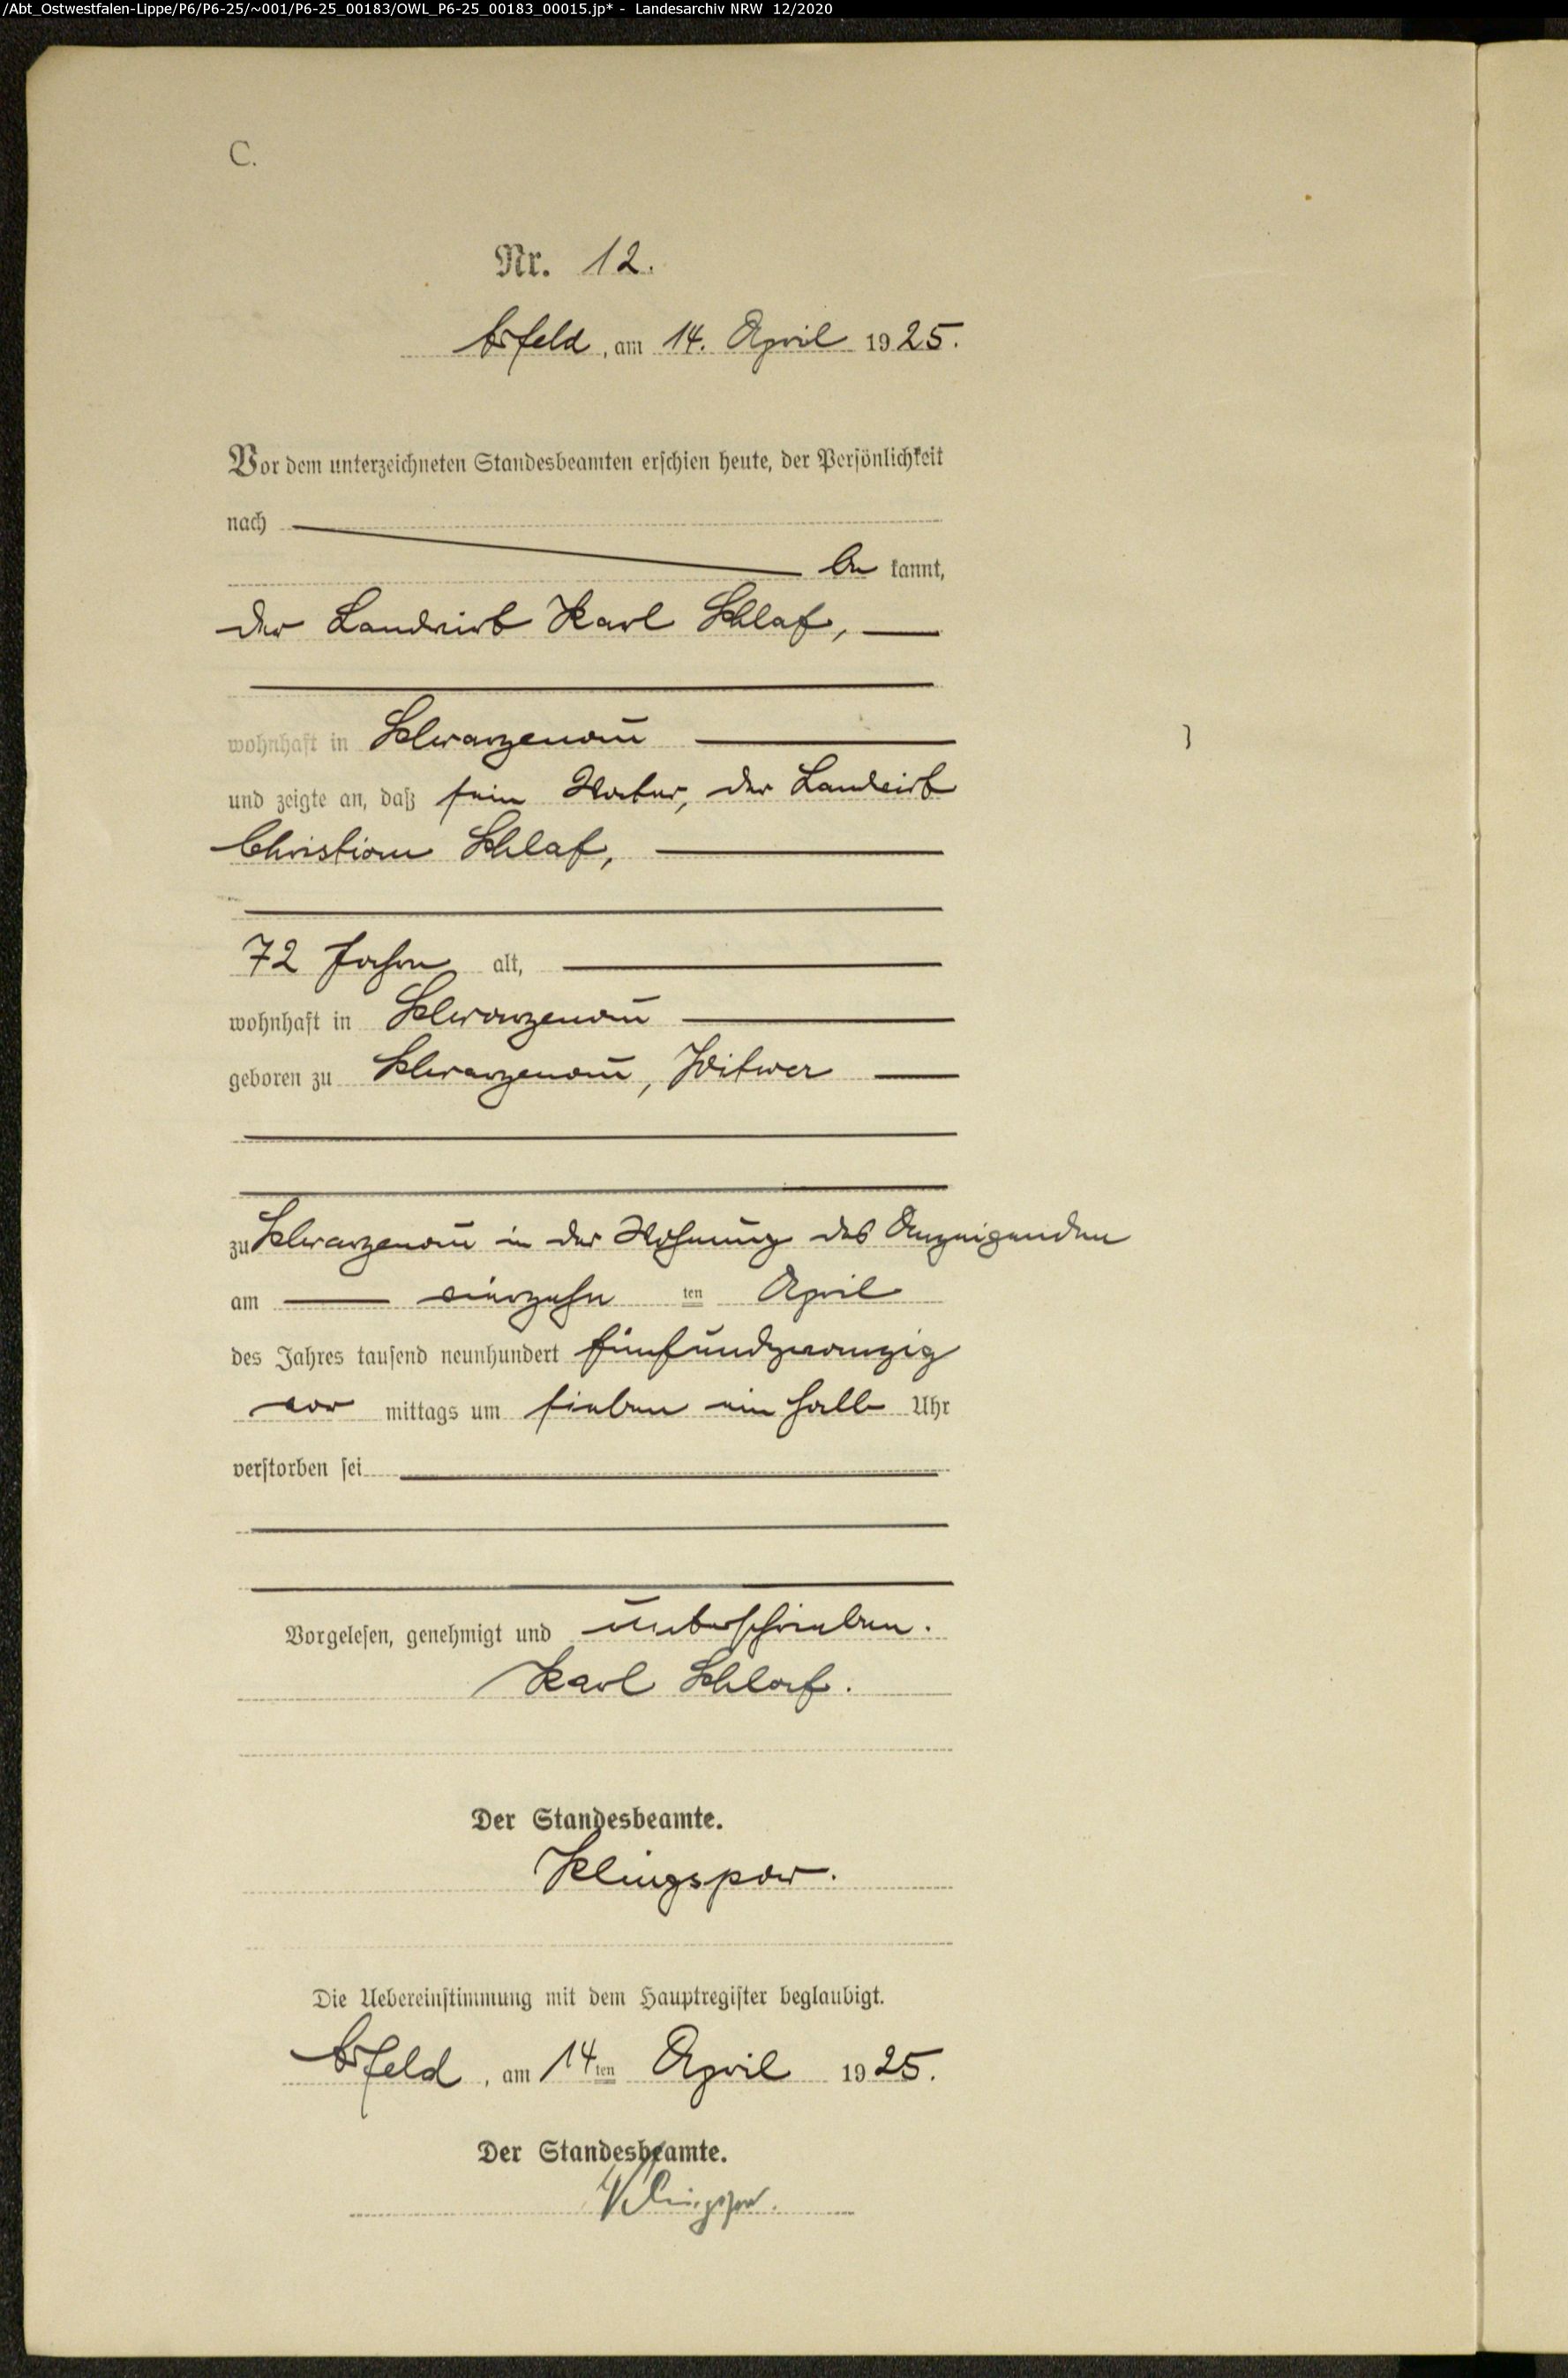 /Abt_Ostwestfalen-Lippe/P6/P6-25/~001/P6-25_00183/OWL_P6-25_00183_00015.jp* - Landesarchiv NRW 12/2020
C.
Nr. 12.
Arfeld, am 14. April 1925.
Vor dem unterzeichneten Standesbeamten erschien heute, der Persönlichkeit
nach
be kannt,
der Landwirt Karl Schlaf,
wohnhaft in Schwarzenau
und zeigte an, daß sein Vater, der Landwirt
Christian Schlaf,
72 Jahre alt,
wohnhaft in Schwarzenau
geboren zu Schwarzenau, Witwer
zu Schwarzenau in der Wohnung des Anzeigenden
am vierzehn ten April
des Jahres tausend neunhundert fünfundzwanzig
vor mittags um sieben ein halb Uhr
verstorben sei
Vorgelesen, genehmigt und unterschrieben.
Karl Schlaf.
Der Standesbeamte.
Klingspor.
Die Uebereinstimmung mit dem Hauptregister beglaubigt.
Arfeld, am 14ten April 1925.
Der Standesbeamte.
Klingspor.